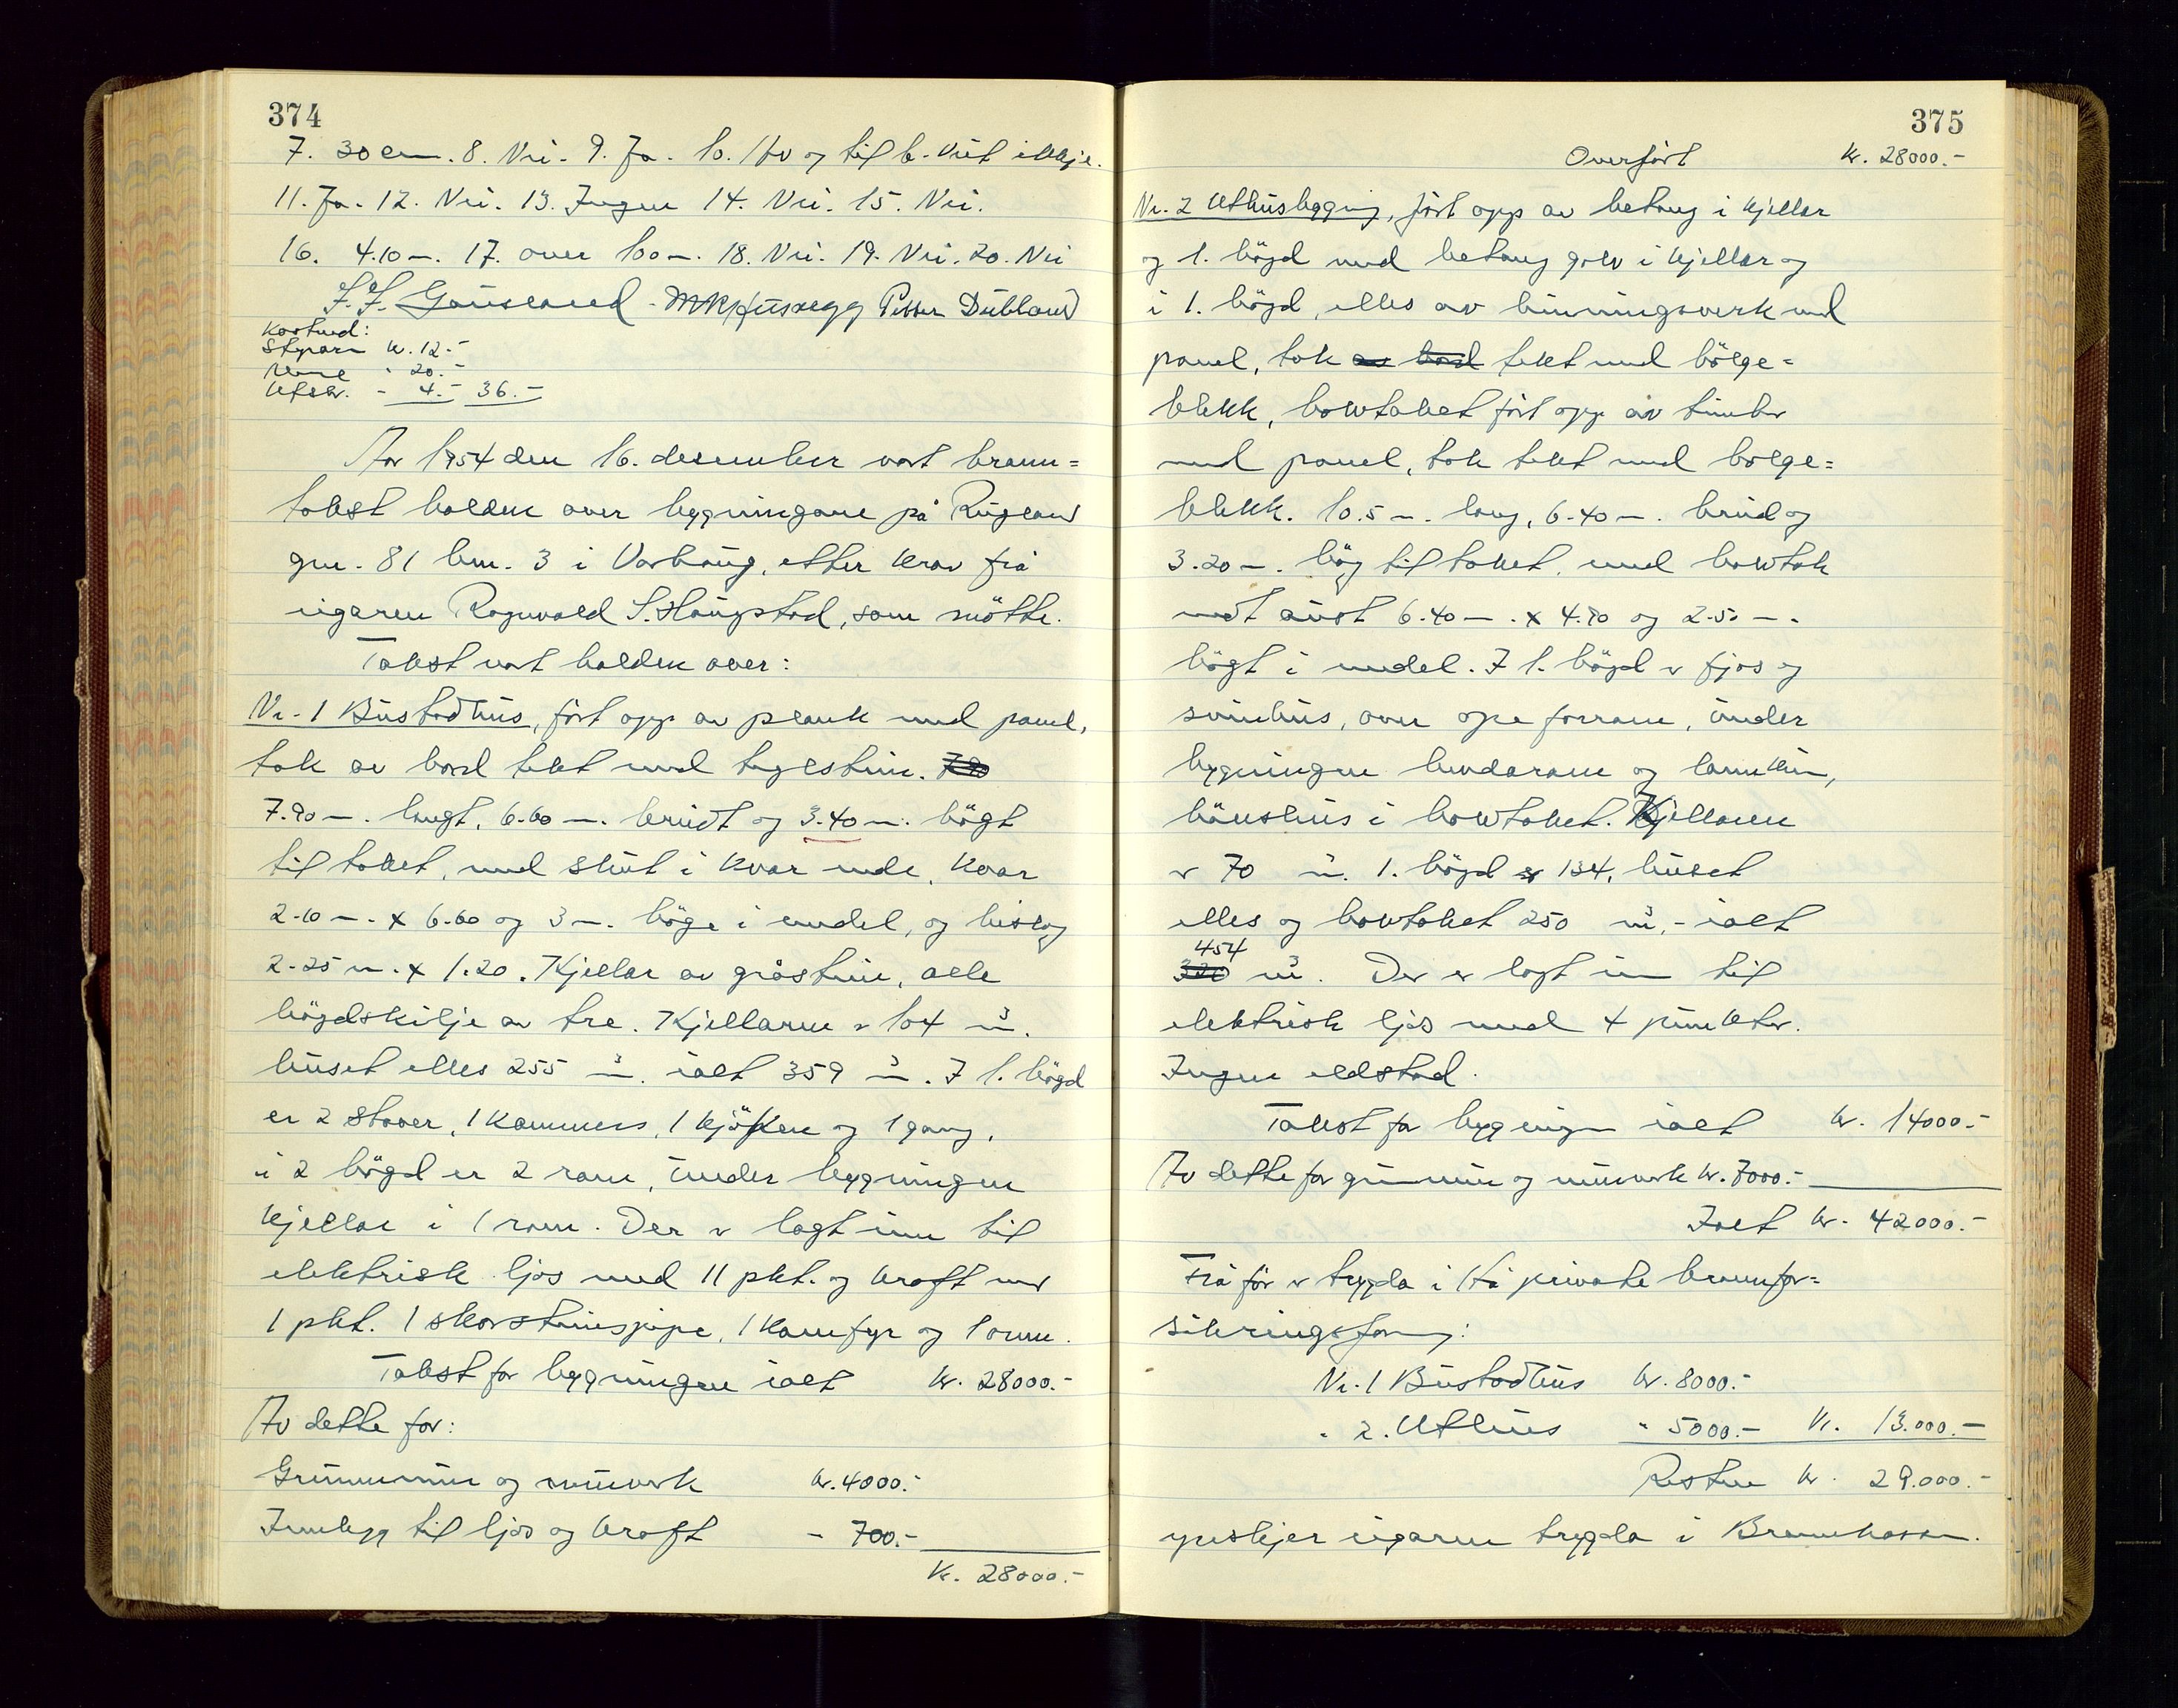 374
7. 30 cm. 8. Nei. 9. Ja. 10. Av og til b. Vist ikkje.
11. Ja. 12. Nei. 13. Ingen 14. Nei. 15. Nei.
16. 4.10 m. 17. over 100 m. 18. Nei. 19. Nei. 20. Nei
J. J. Gauseland - M K Husvegg Petter Dubland
Kostnad:
Styparn kr. 12.-
" 20.-
Utskr. - 4.- 36.-
År 1954 den 16. desember vart brann=
takst halden over bygningane på Rugland
gnr. 81 bnr. 3 i Varhaug, etter krav frå
eigaren Ragnvald S. Haugstad, som møtte.
Takst vart halden over:
Nr. 1 Bustadhus, ført opp av plank med panel,
tak av bord tekt med teglstein. 7.90
7.90 m. langt, 6.60 m. breidt og 3.40 m. högt
til taket, med skut i kvar ende, kvar
2.10 m. x 6.60 og 3 m. höge i medel, og bislag
2.25 m. x 1.20. Kjellar av gråstein, alle
högdskilje av tre. Kjellaren er 104 m³.
huset elles 255 m³. ialt 359 m³. I 1. högd
er 2 stover, 1 kammers, 1 kjöken og 1 gang,
i 2 högd er 2 rom, under bygningen
kjellar i 1 rom. Der er lagt inn til
elektrisk ljos med 11 pkt. og kraft med
1 pkt. 1 skorsteinspipe, 1 komfyr og 1 omn.
Takst for bygningen ialt kr. 28000.-
Av dette for:
Grunnmur og murverk kr. 4000.-
Innlegg til ljos og kraft - 700.-
Kr. 28000.-
375
Overfört kr. 28000.-
Nr. 2 Uthusbygning, fört opp av betong i kjellar
og 1. högd med betong golv i kjellar og
i 1. högd, elles av binningsverk med
panel, tak av bord tekt med bölge=
blekk, halvtaket fört opp av timber
med panel, tak tekt med bölge=
blekk. 10.5 m. lang, 6.40 m. breid og
3.20 m. hög til taket, med halvtak
mot aust 6.40 m. x 4.70 og 2.50 m.
högt i medel. I 1. högd er fjos og
svinehus, over ope forrom, under
bygningen landarom og
hönshus i halvtaket. Kjellaren
er 70 m³. 1. högd er 134, huset
elles og halvtaket 250 m³, - ialt
454
320 m³. Der er lagt inn til
elektrisk ljos med 4 punkter.
Ingen eldstad.
Takst for bygningen ialt kr. 14000.-
Av dette for grunnmur og murverk kr. 7000.-
Ialt kr. 42000.-
Frå för er trygda i Hå private brannfor=
sikringsforening:
Nr. 1 Bustadhus kr. 8000.-
" 2. Uthus " 5000.- Kr. 13.000.-
Resten kr. 29.000.-
ynskjer eigaren trygda i Brannkassen.